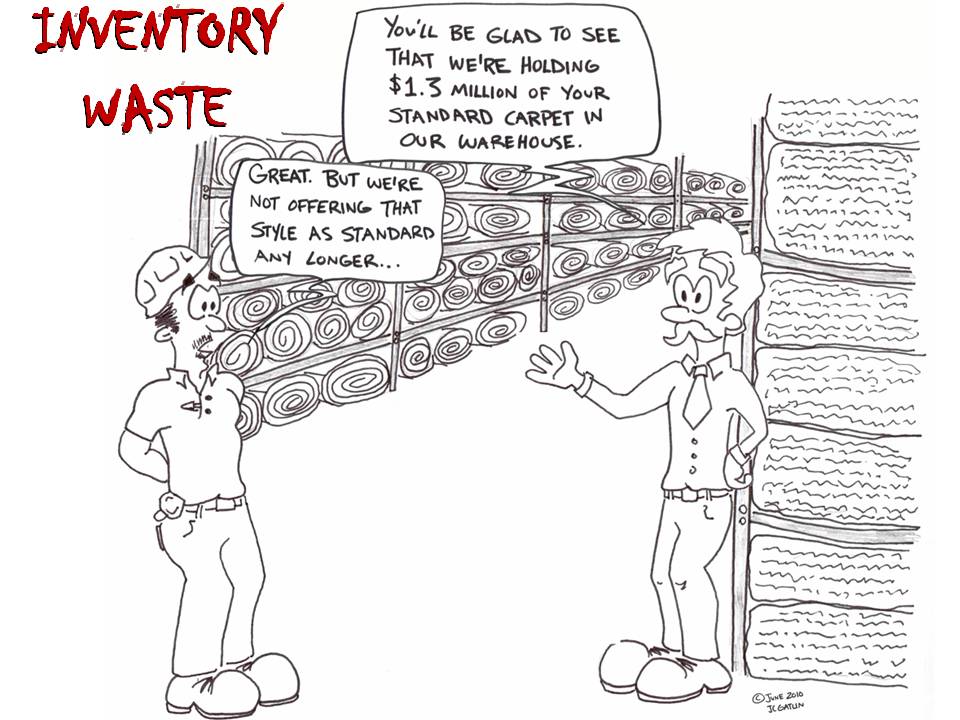 INVENTORY
WASTE
YOU'LL BE GLAD TO SEE
THAT WE'RE HOLDING
$1.3 MILLION OF YOUR
STANDARD CARPET IN
OUR WAREHOUSE.
GREAT. BUT WE'RE
NOT OFFERING THAT
STYLE AS STANDARD
ANY LONGER...
© JUNE 2010
JC GATLIN